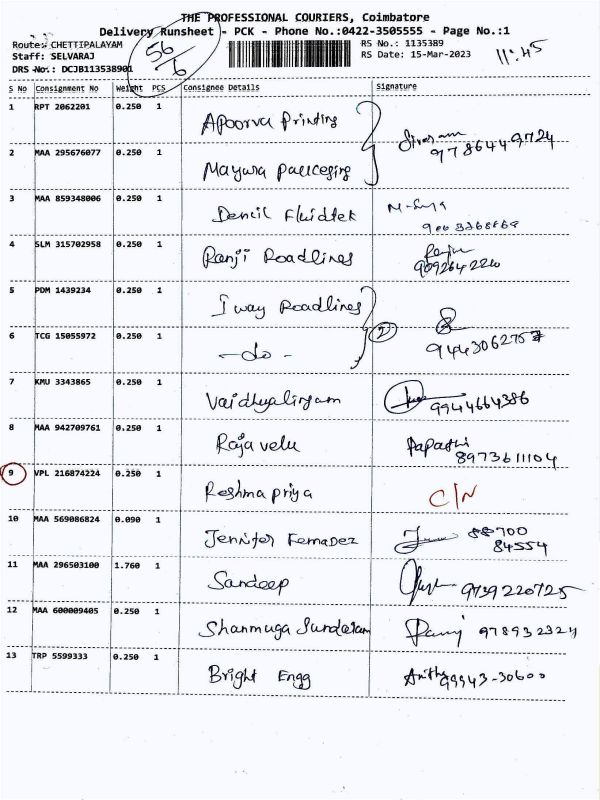 THE PROFESSIONAL COURIERS, Coimbatore
Delivery Runsheet - PCK - Phone No.:0422-3505555 - Page No.:1
Route: CHETTIPALAYAM
Staff: SELVARAJ
DRS No.: DCJB113538901
56/6
RS No.: 1135389
RS Date: 15-Mar-2023
11:45
S No Consignment No Weight PCS Consignee Details Signature
1 RPT 2062201 0.250 1 Apoorva Printing
Sivaram 9786449724
2 MAA 295676077 0.250 1
3 MAA 859348006 0.250 1 Dencil Fluidtek
4 SLM 315702958 0.250 1 Ranji Roadlines
5 PDM 1439234 0.250 1 I way Roadlines
2
6 TCG 15055972 0.250 1 -do-
7 KMU 3343865 0.250 1 Vaidhyalingam 9944664386
8 MAA 942709761 0.250 1 Rajavelu
8973611104
9 VPL 216874224 0.250 1 Reshma priya C/N
10 MAA 569086824 0.090 1 Jennifer Fernadez 88700
84554
11 MAA 296503100 1.760 1 Sandeep 9739220725
12 MAA 600009405 0.250 1 Shanmuga Sundaram 978932324
13 TRP 5599333 0.250 1 Bright Engg 99943-30600